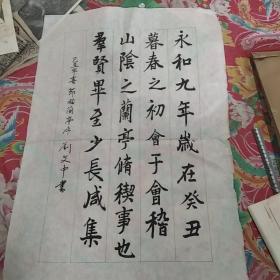 永和九年歲在癸丑
暮春之初會于會稽
山陰之蘭亭脩稧事也
羣賢畢至少長咸集
節臨蘭亭序
劉文中書